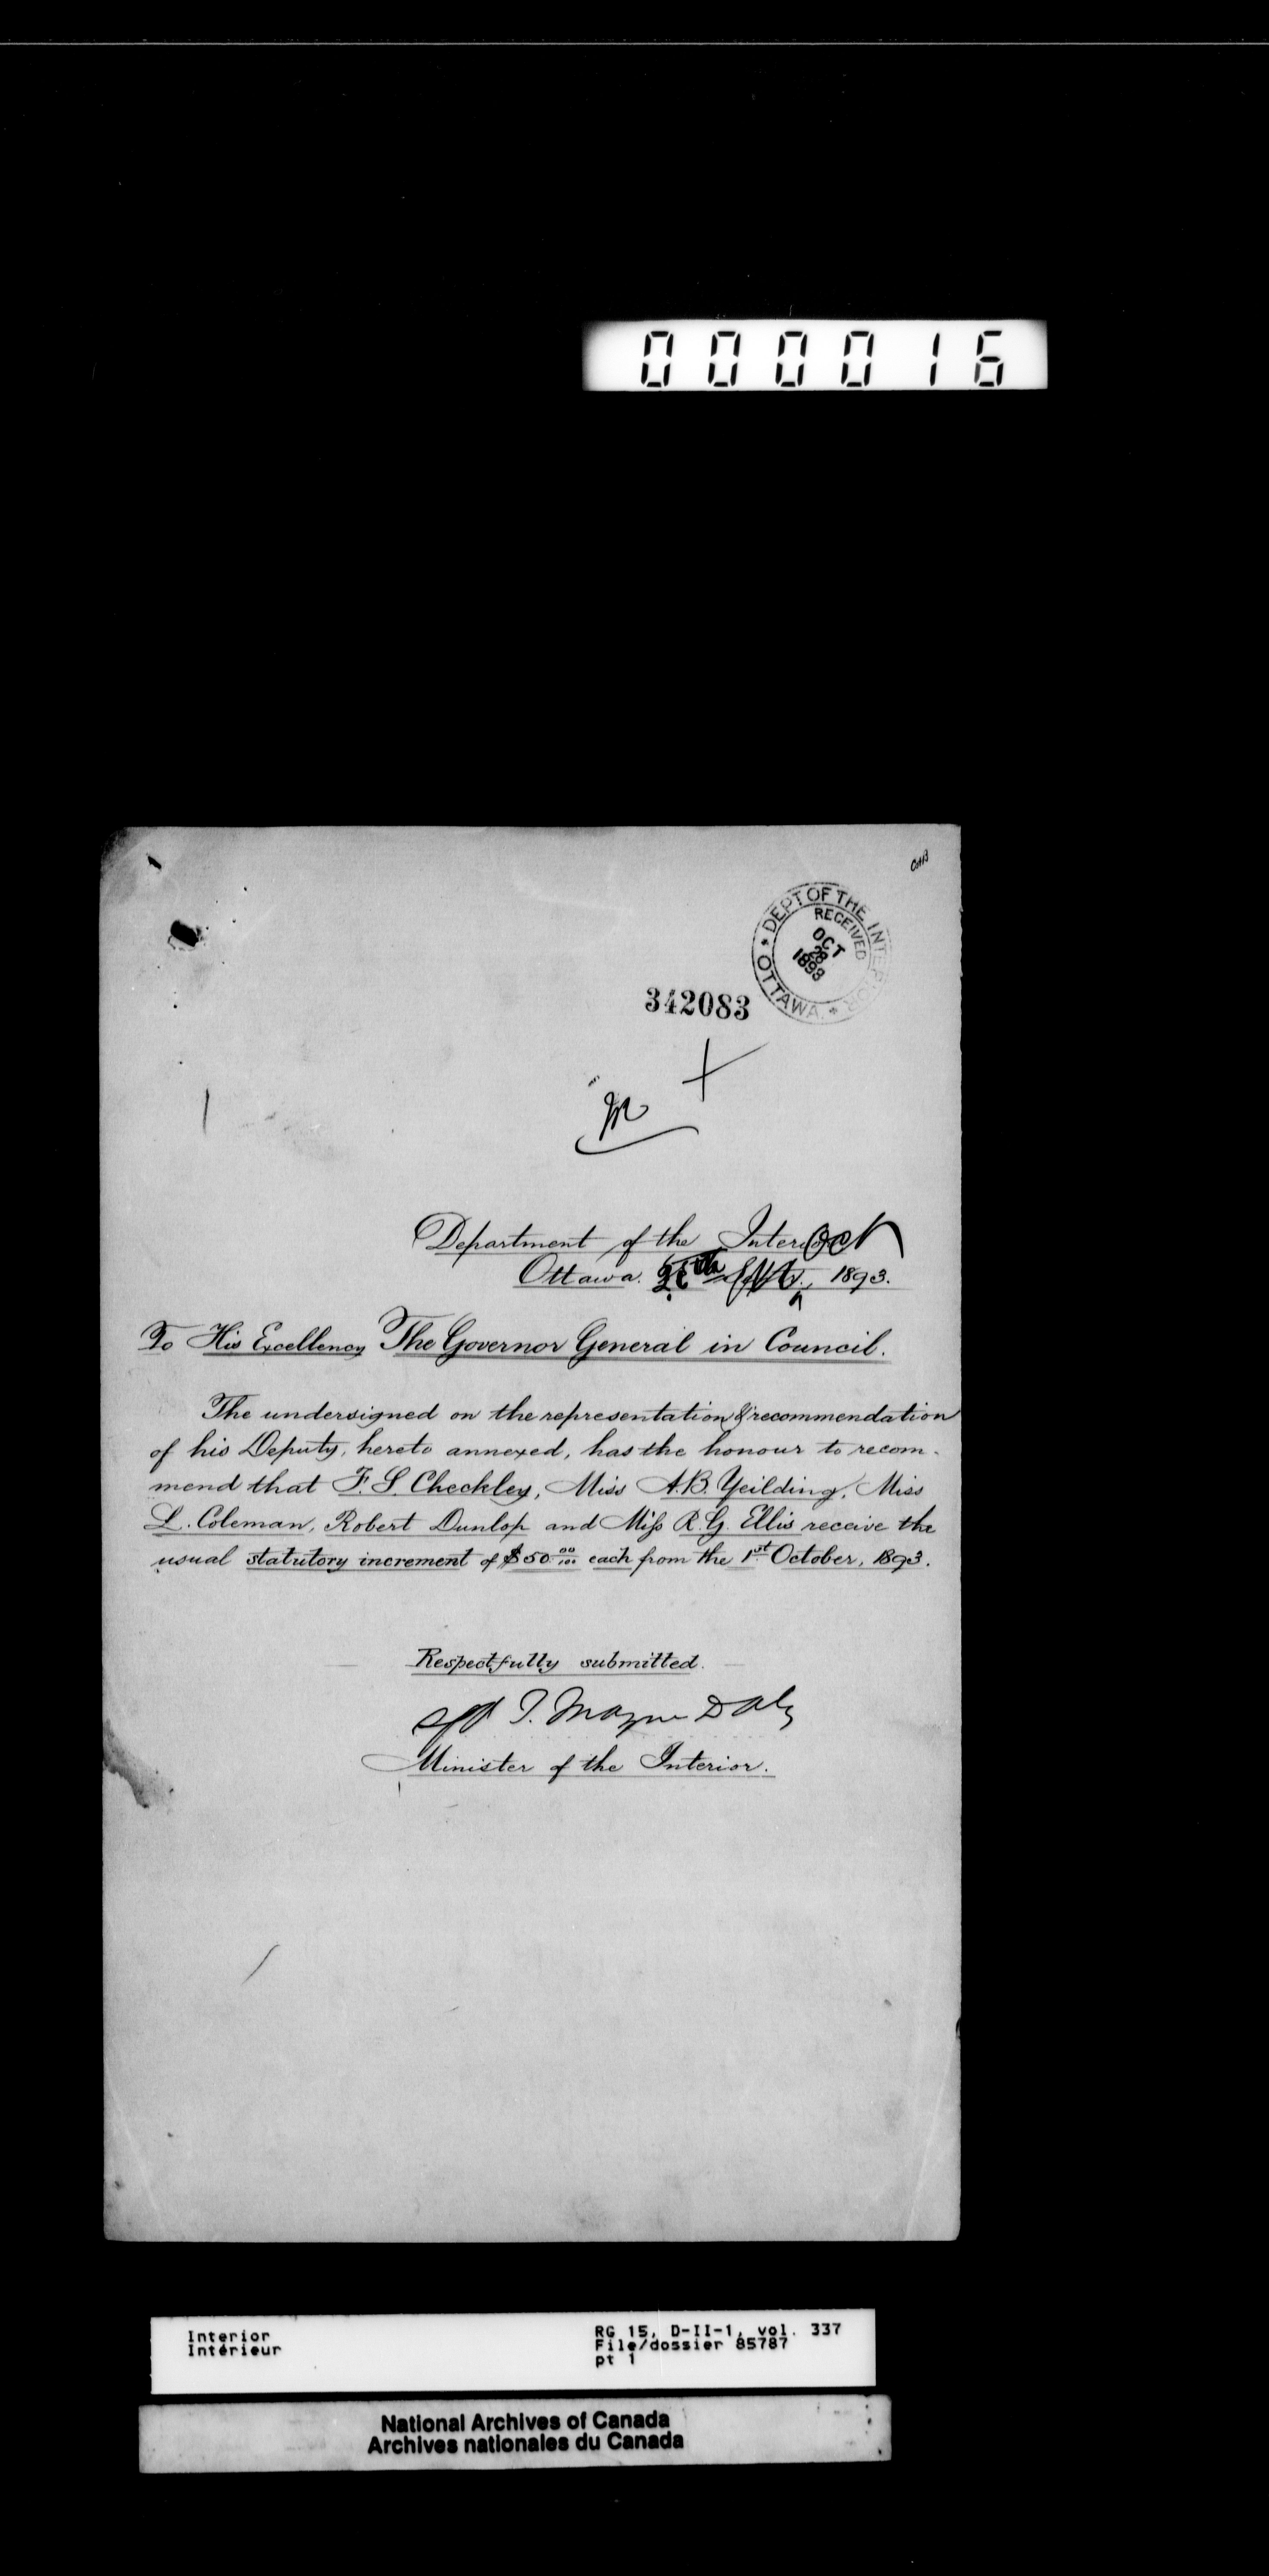 000016
DEPT OF THE INTERIOR
RECEIVED
OCT
28
1893
* OTTAWA. *
342083
Department of the Interior
Oct
Ottawa. Sept., 1893.
To His Excellency The Governor General in Council.
The undersigned on the representation & recommendation
of his Deputy, hereto annexed, has the honour to recom-
mend that F. S. Checkley, Miss A.B. Yeilding, Miss
L. Coleman, Robert Dunlop and Miss R. G. Ellis receive the
usual statutory increment of $50 00/100 each from the 1st October, 1893.
Respectfully submitted.
sgd T. Mayne Daly
Minister of the Interior.
Interior
Intérieur
RG 15, D-II-1, vol. 337
File/dossier 85787
pt 1
National Archives of Canada
Archives nationales du Canada